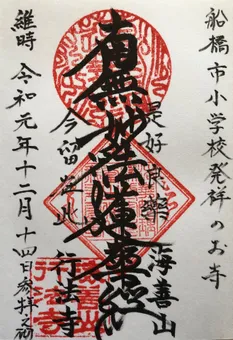 船橋市小学校発祥のお寺
海善山
是好良薬
南無妙法蓮華経
今留在此
行法寺
維時 令和元年十二月十四日参拝之砌
行法寺